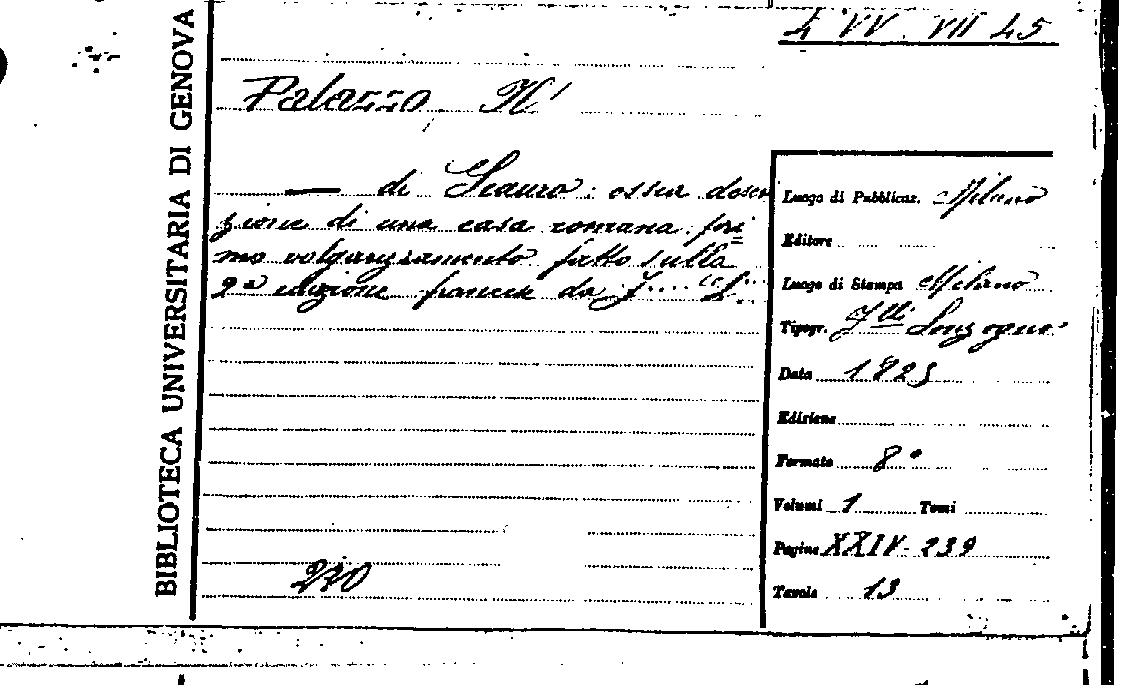 BIBLIOTECA UNIVERSITARIA DI GENOVA
4 VV. VII 25
Palazzo, Il
— di Scauro: ossia descri
zione di una casa romana. pri=
mo volgarizzamento fatto sulla
2ª edizione francese da F.... L...
210
Luogo di Pubblicaz. Milano
Editore
Luogo di Stampa Milano
Tipogr. Flli Sonzogno
Data 1825
Edizione
Formato 8°
Volumi 1 Tomi
Pagine XXIV-239
Tavole 13